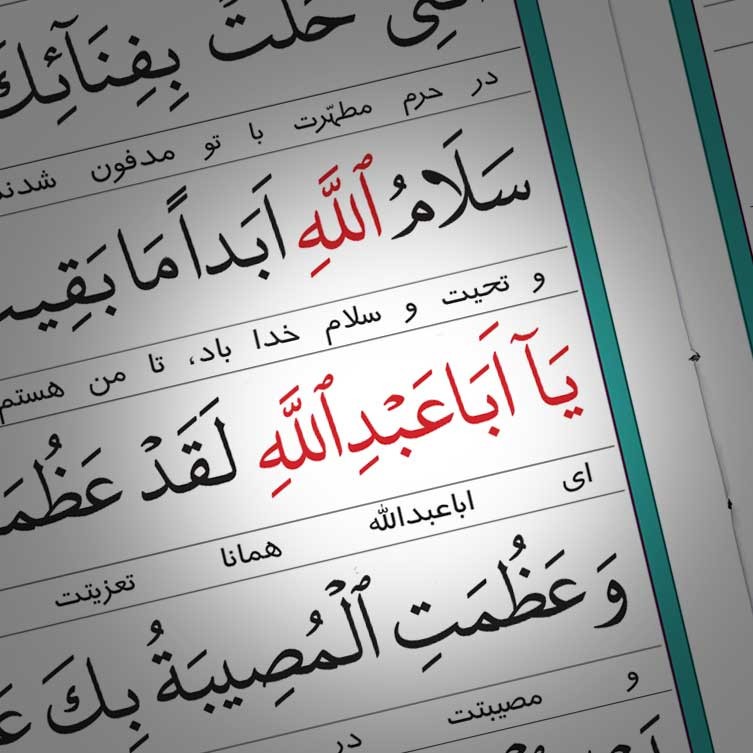 حَلَّتْ بِفِنَائِكَ
در حرم مطهّرت با تو مدفون شدند
سَلَامُ اللَّهِ اَبَداً مَا بَقِيتُ
و تحیت و سلام خدا باد، تا من هستم
يَآ اَبَاعَبْدِاللَّهِ لَقَدْ عَظُمَ
ای اباعبدالله همانا تعزیتت
وَ عَظُمَتِ الْمُصِيبَةُ بِكَ
و مصیبتت در